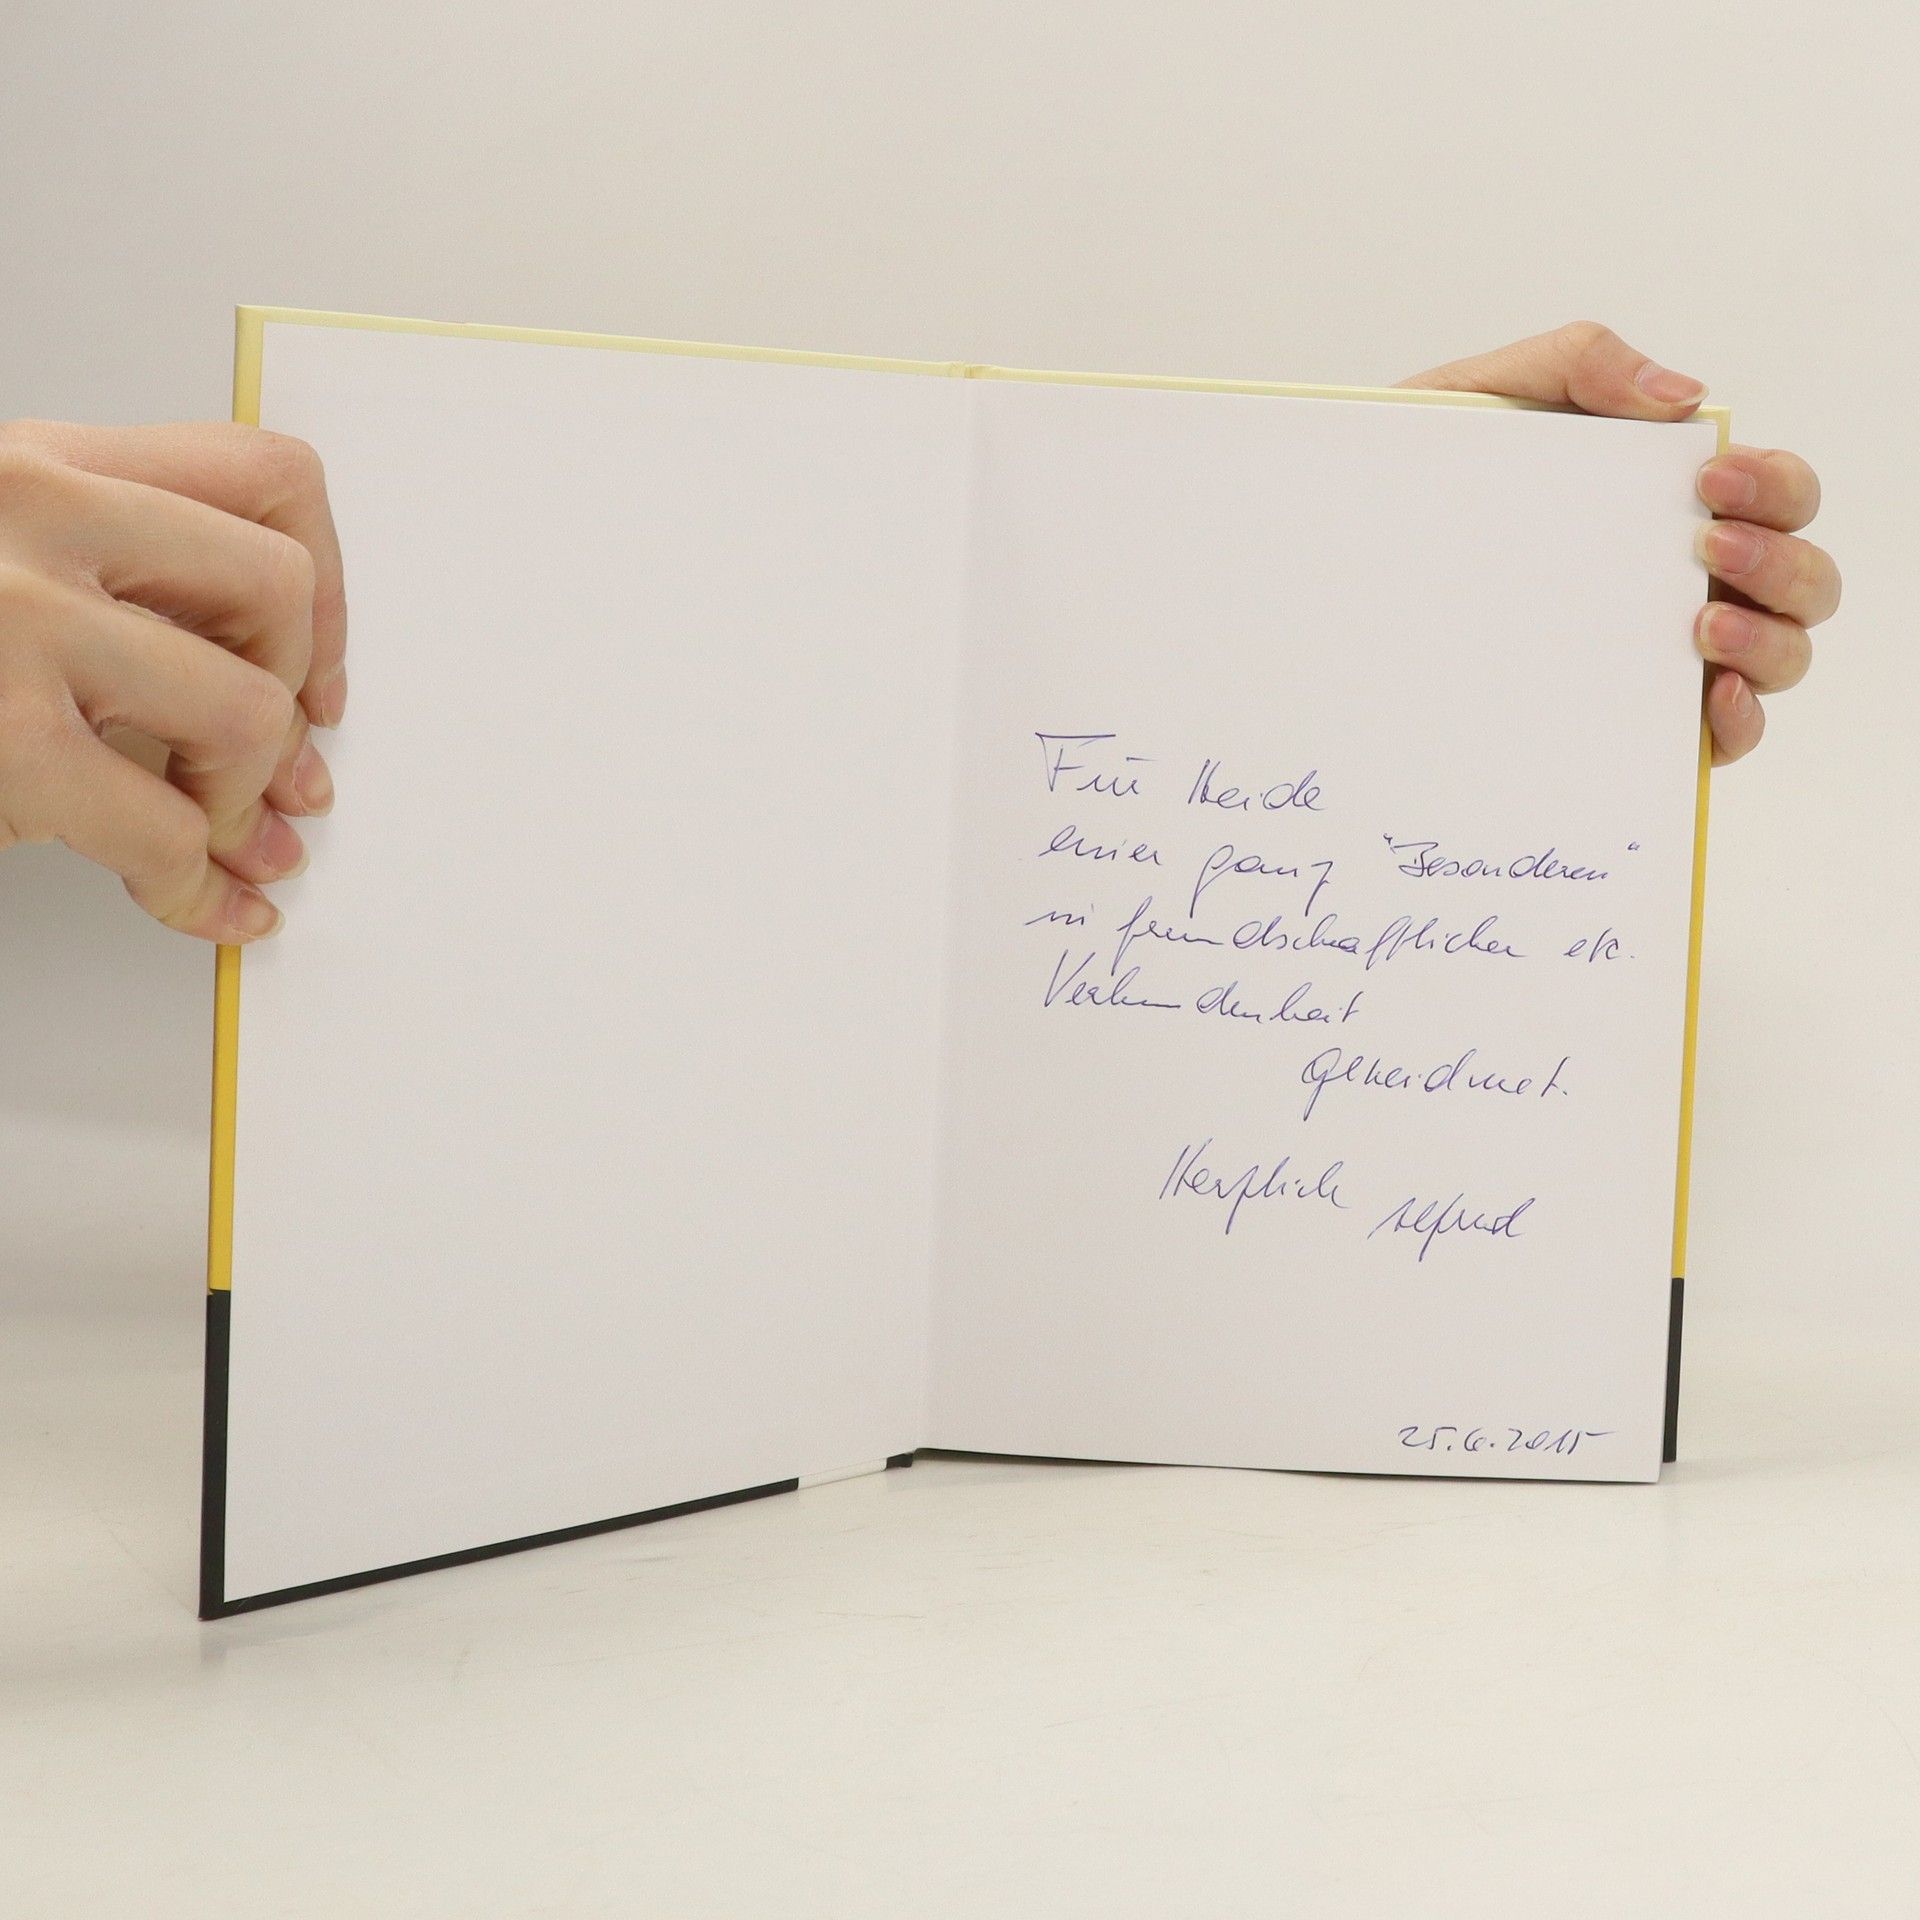 Für Heide
einer ganz "Besonderen"
in freundschaftlicher etc.
Verbundenheit
gewidmet.
Herzlich Alfred
25.6.2015